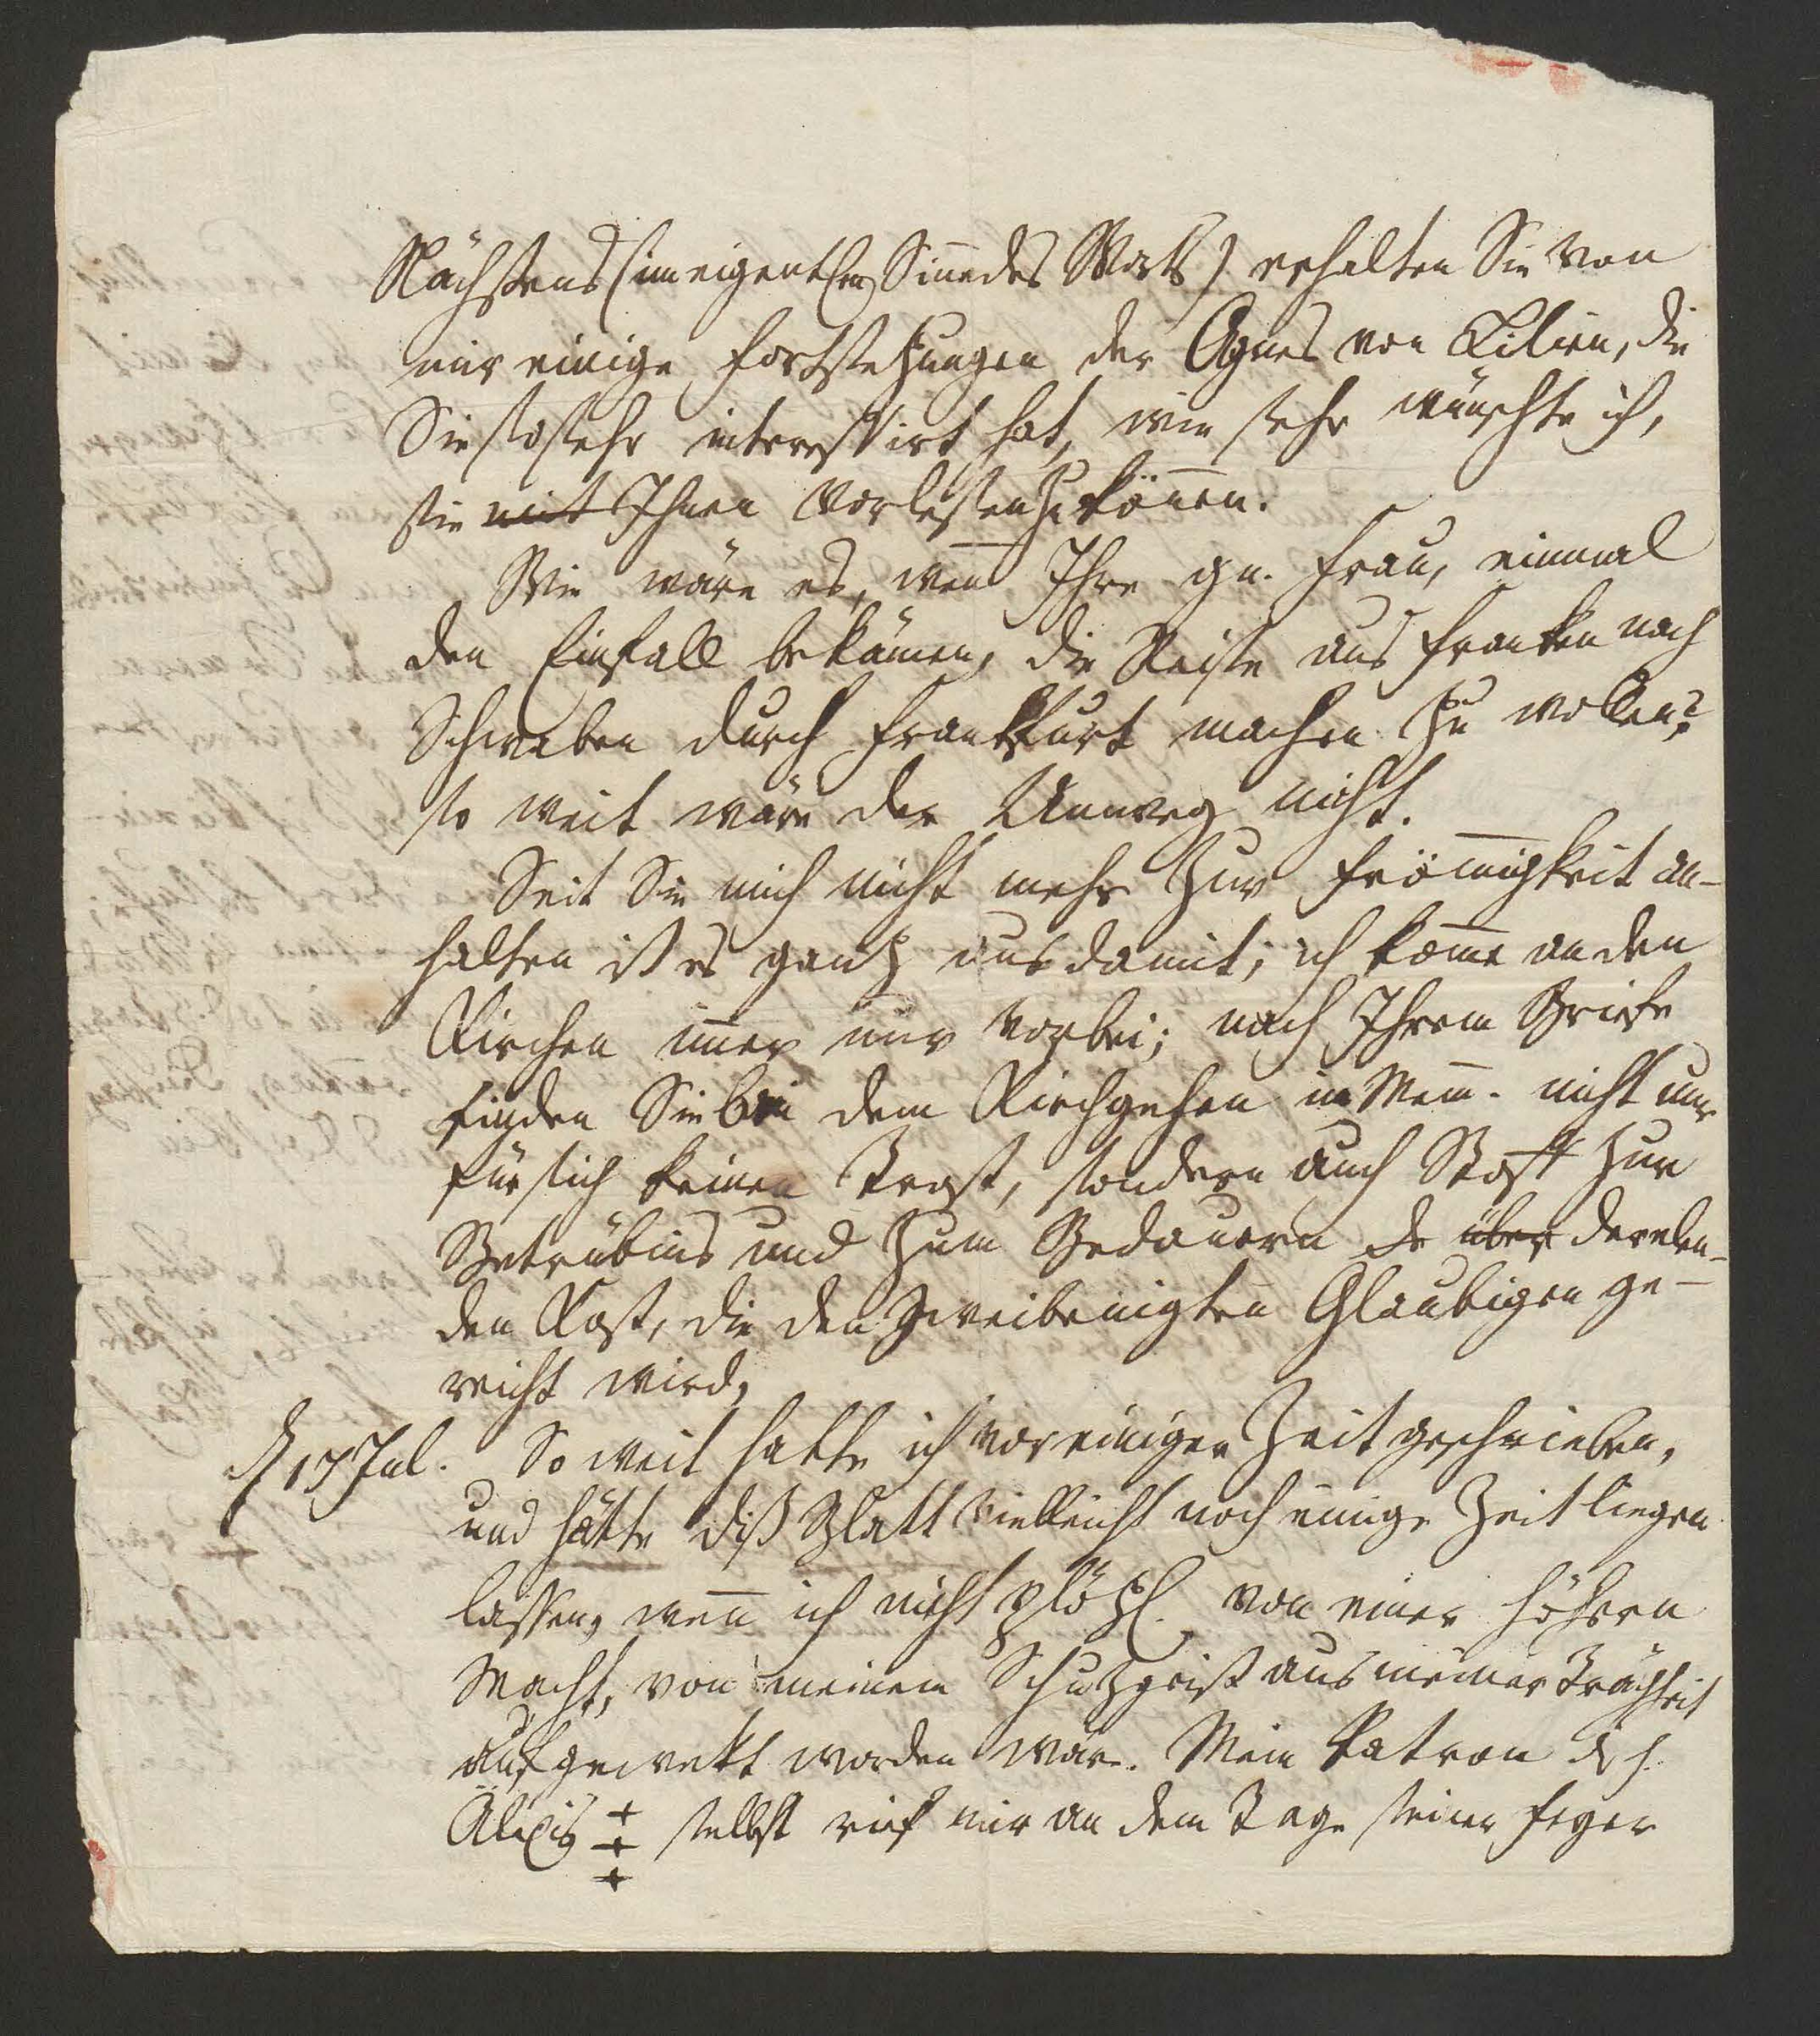 Nächstens (im eigentlen Sinne des Worts) erhalten Sie von
mir einige Fortsetzungen der Agnes von Lilien, die
Sie so sehr interessirt hat, wie sehr wünschte ich,
sie mit Ihnen vorlesen zu könen.
Wie wäre es, wen Ihre gn. Frau, einmal
den Einfall bekämen, die Reise aus Franken nach
Schwaben durch Frankfurt machen zu wollen?
so weit wäre der Umweg nicht.
Seit Sie mich nicht mehr zur Frömigkeit an-
halten ist es ganz aus damit; ich kome an den
Kirchen imer nur vorbei; nach Ihrem Briefe
finden Sie bei dem Kirchgehen in Mem. nicht nur
für sich keinen Trost, sondern auch Stoff zur
Betrübnis und zum Bedauern de über der elen-
den Kost, die den zweibeinigten Glaubigen ge-
reicht wird,
d 17 Jul. So weit hatte ich vor einiger Zeit geschrieben,
und hätte diß Blatt vielleicht noch einige Zeit liegen
lassen, wen ich nicht plözl. von einer höhern
Macht, von meinem Schutzgeist aus meiner Trägheit
aufgewekt worden wäre. Mein Patron d h.
Alexis +++ selbst rief mir an dem Tage seiner Feyer